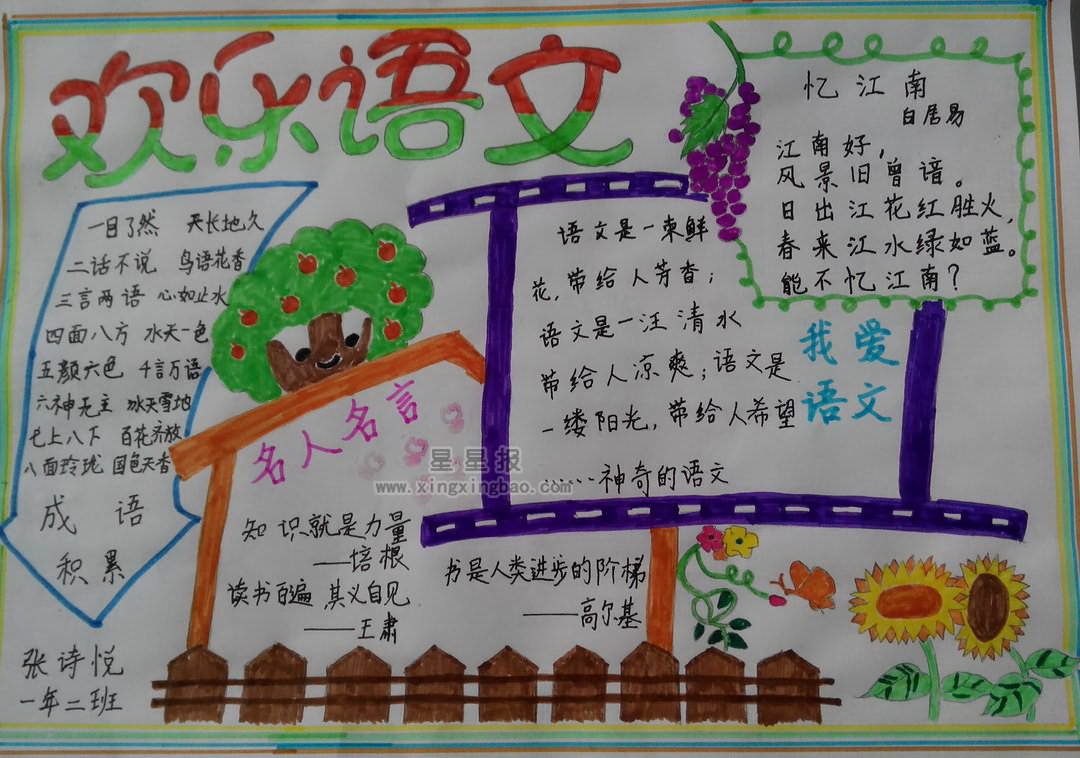 欢乐语文
忆江南
白居易
江南好，
风景旧曾谙。
日出江花红胜火，
春来江水绿如蓝。
能不忆江南？
一目了然 天长地久
二话不说 鸟语花香
三言两语 心如止水
四面八方 水天一色
五颜六色 千言万语
六神无主 冰天雪地
七上八下 百花齐放
八面玲珑 国色天香
成语
积累
语文是一束鲜
花，带给人芳香；
语文是一汪清水
带给人凉爽；语文是
一缕阳光，带给人希望
……神奇的语文
我爱
语文
名人名言
星星报
www.xingxingbao.com
知识就是力量
——培根
读书百遍，其义自见
——王肃
书是人类进步的阶梯
——高尔基
张诗悦
一年二班